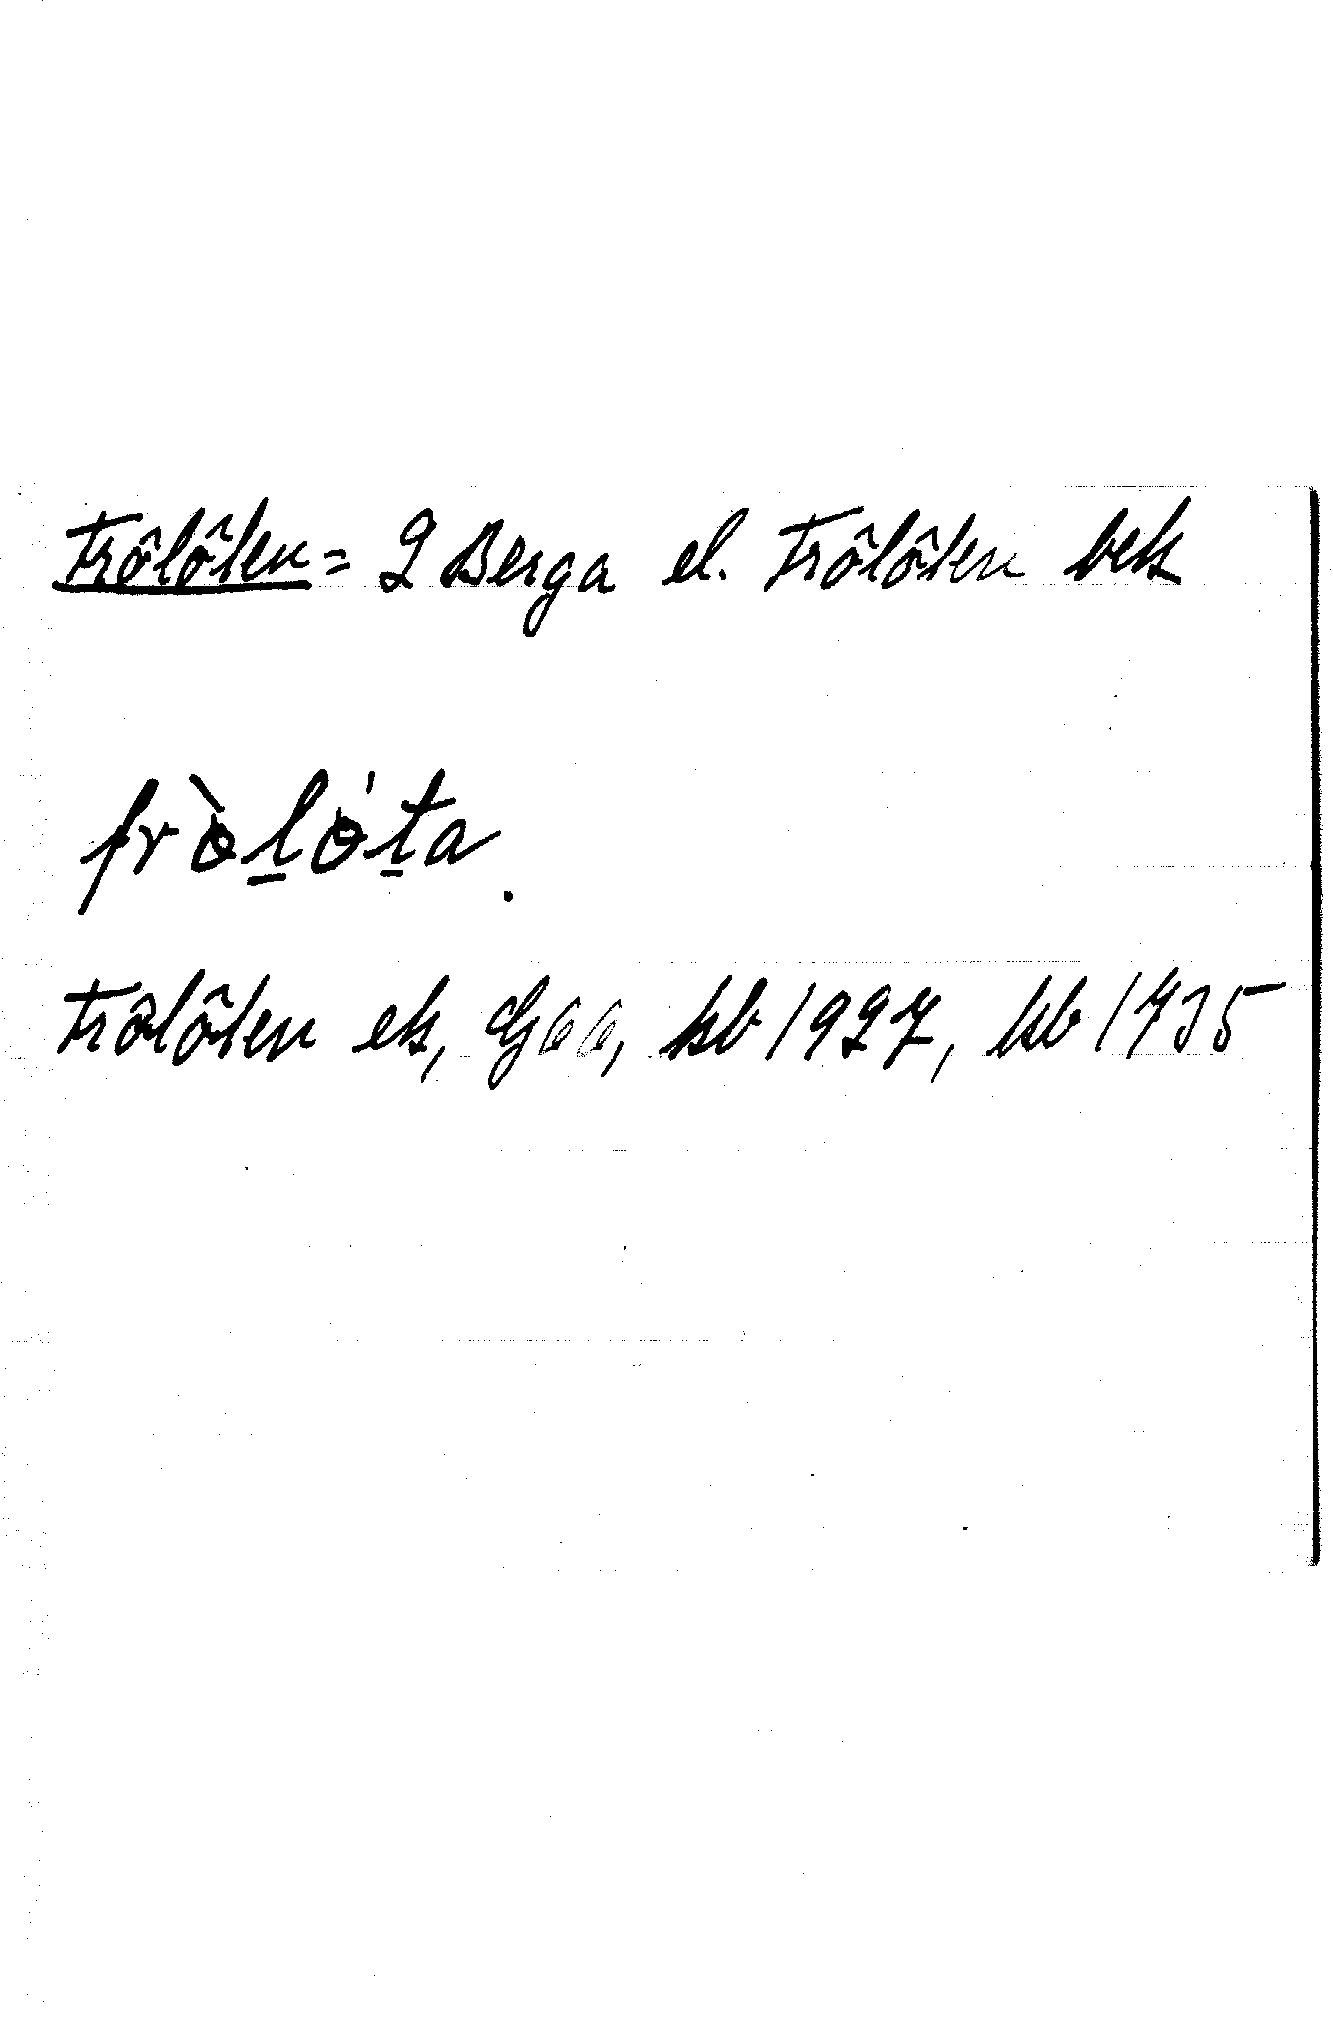 Frölöten = 2 Berga el. Frölöten bek
fròlǿta.
Frölöten ek, kb 1927, kb 1935